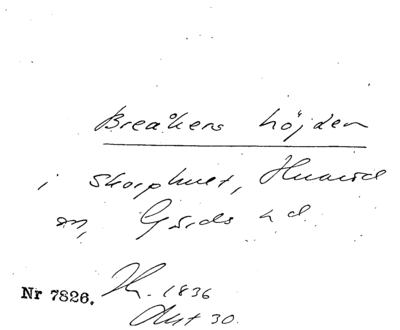 Breåkers höjden
i Skorphult, Huaröd
sn, Gärds hd.
Nr 7826. Th. 1836
Akt 30.